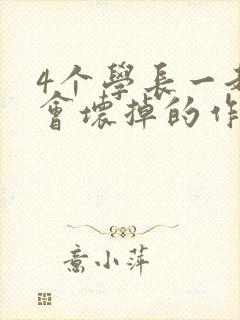 4个學長一
會壞掉的作
意小萍